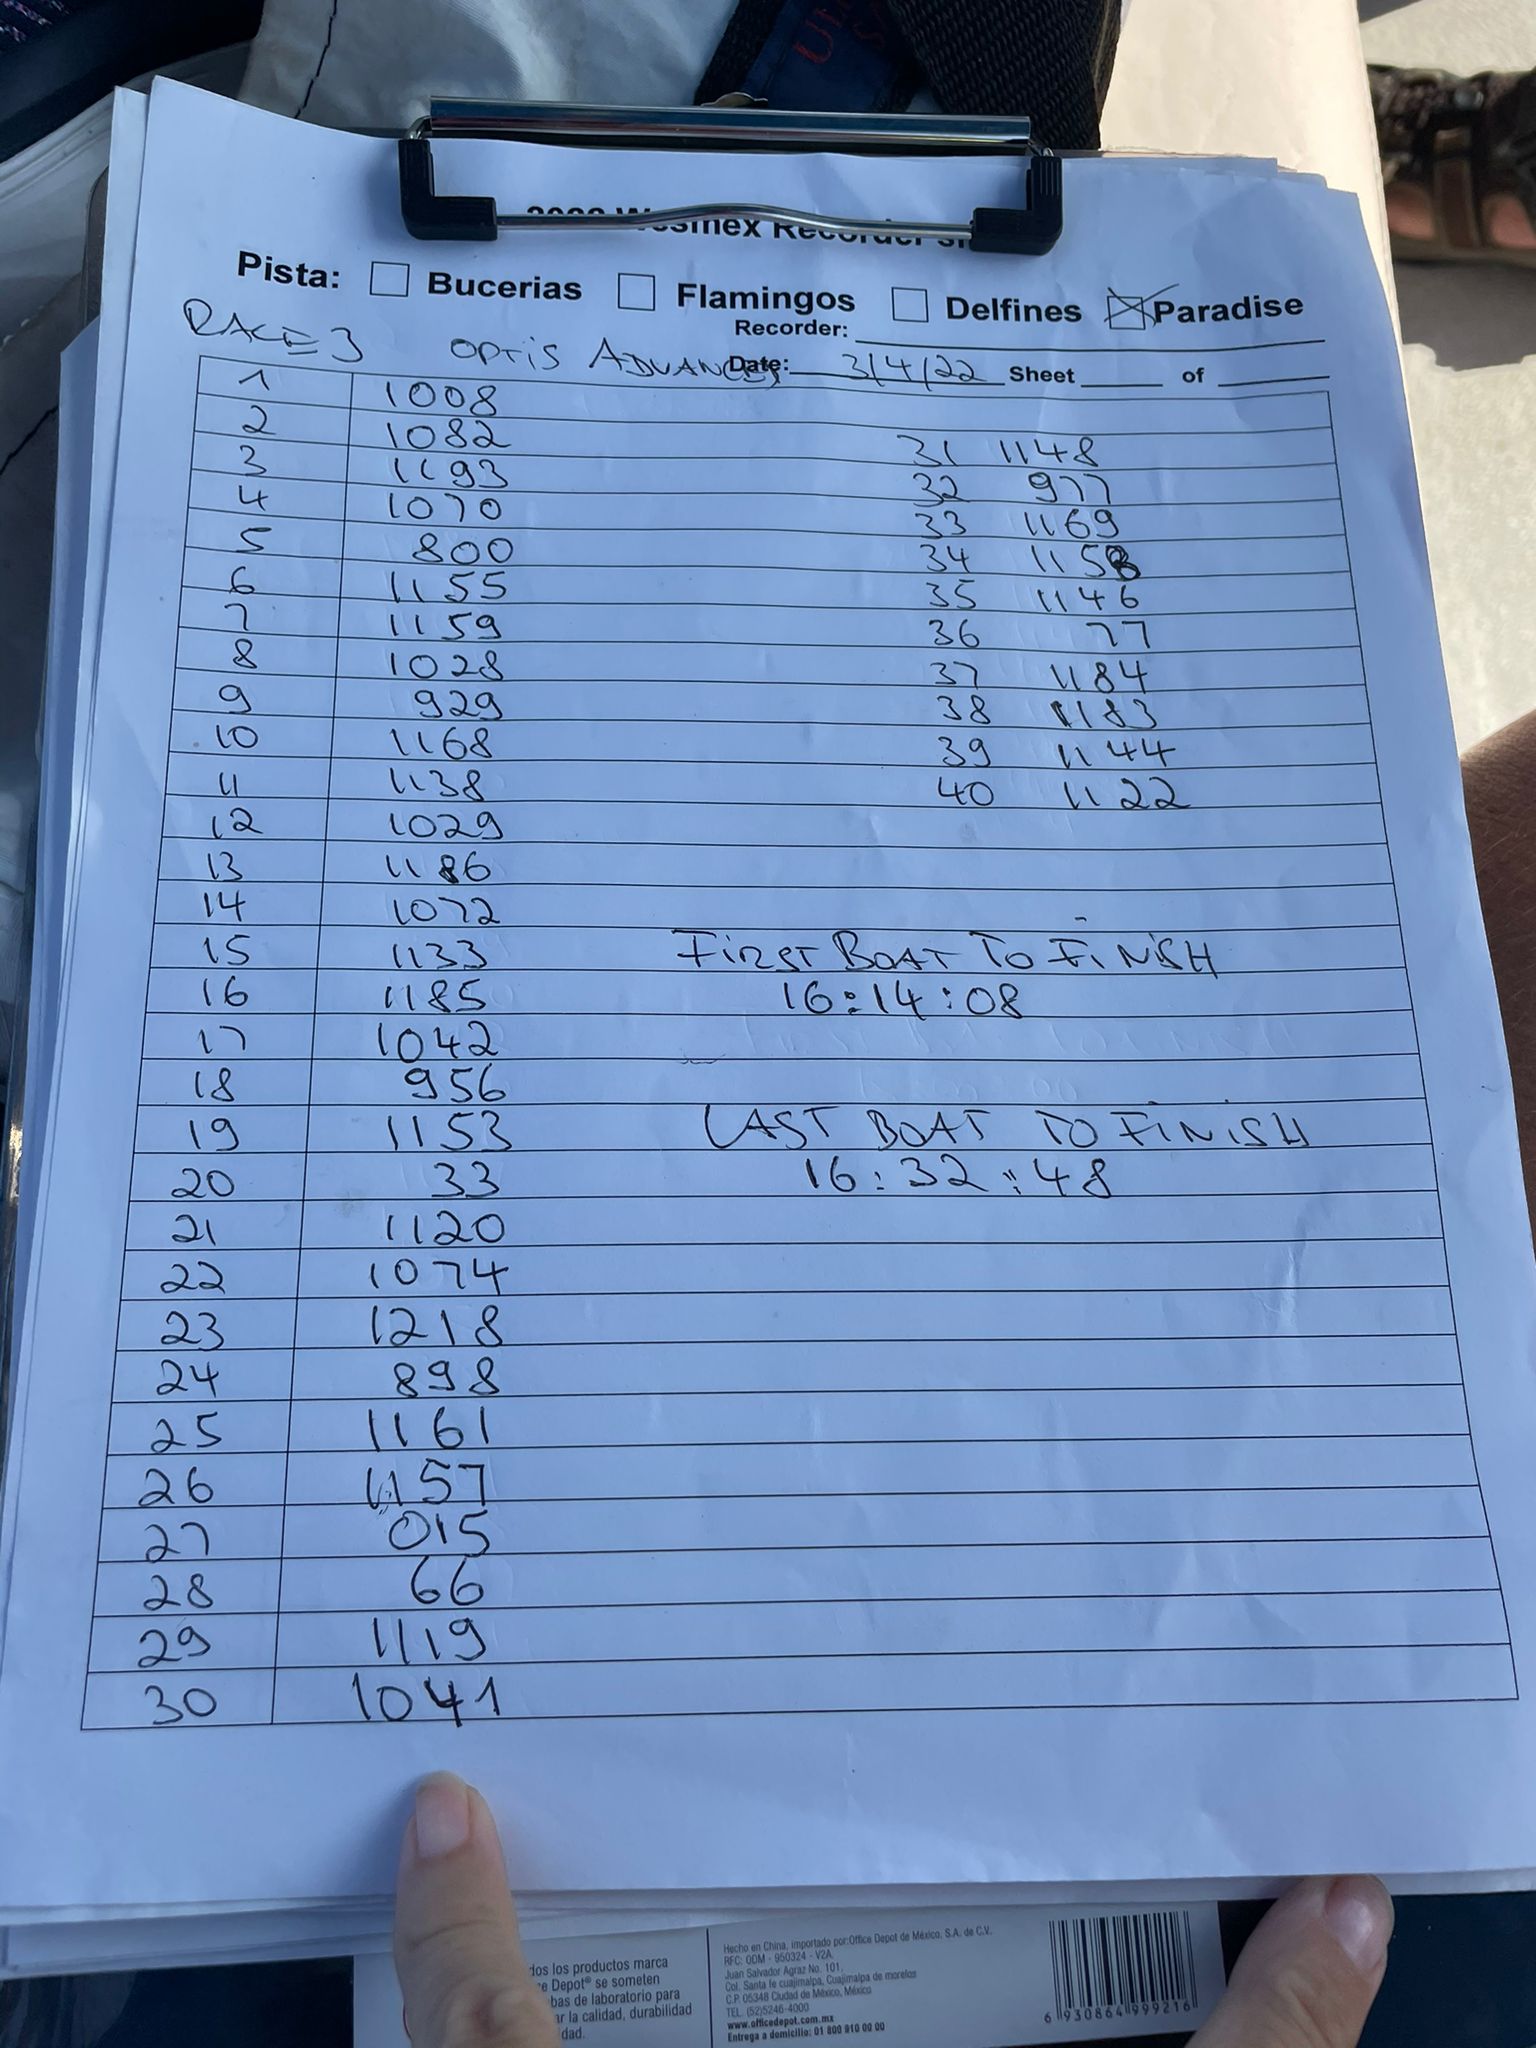 Pista: Bucerias Flamingos Delfines Paradise
Recorder:
RACE 3 OPTIS ADVANCED Date: 3/4/22 Sheet of
1 1008
2 1082 31 1148
3 1193 32 977
4 1070 33 1169
5 800 34 1158
6 1155 35 1146
7 1159 36 77
8 1028 37 1184
9 929 38 1183
10 1168 39 1144
11 1138 40 1122
12 1029
13 1186
14 1072
15 1133 FIRST BOAT TO FINISH
16 1185 16:14:08
17 1042
18 956
19 1153 LAST BOAT TO FINISH
20 33 16:32:48
21 1120
22 1074
23 1218
24 898
25 1161
26 1157
27 015
28 66
29 1119
30 1041
dos los productos marca
e Depot® se someten
bas de laboratorio para
ar la calidad, durabilidad
dad.
Hecho en China, importado por:Office Depot de México, S.A. de C.V.
RFC: ODM - 950324 - V2A.
Juan Salvador Agraz No. 101,
Col. Santa fe cuajimalpa, Cuajimalpa de morelos
C.P. 05348 Ciudad de México, México
TEL. (52)5246-4000
www.officedepot.com.mx
Entrega a domicilio: 01 800 910 00 00
6 930864 999216